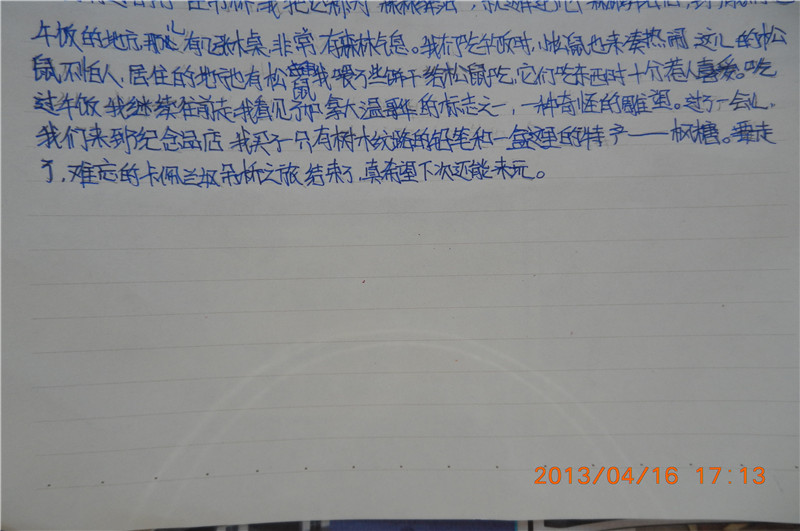 午饭的地方,那儿有几张木桌,非常有森林气息。我们吃午饭时,松鼠也来凑热闹,这儿的松
鼠不怕人,居住的地方也有松鼠,我喂了些饼干给松鼠吃,它们吃东西时十分惹人喜爱。吃
过午饭,我继续往前走,我看见了加拿大温哥华的标志之一,一种奇怪的雕塑。过了一会儿,
我们来到纪念品店,我买了一个有树木纹路的铅笔和一盒这里的特产——枫糖。要走
了,难忘的卡佩兰奴吊桥之旅结束了,真希望下次还能来玩。
2013/04/16 17:13